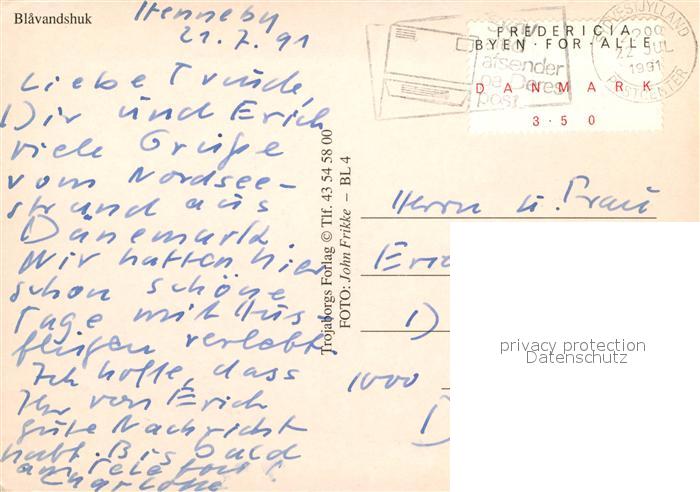 Blåvandshuk
Henneby
21.7.91
Liebe Trude,
Dir und Erich
viele Grüße
vom Nordsee-
strand aus
Dänemark.
Wir hatten hier
schon schöne
Tage mit Aus-
flügen verlebt.
Ich hoffe, dass
Ihr von Erich
gute Nachricht
habt. Bis bald
am Telefon!
Charlotte
Trojaborgs Forlag © Tlf. 43 54 58 00
FOTO: John Frikke – BL 4
afsender
på Deres
post.
FREDERICIA
BYEN·FOR·ALLE
DANMARK
3·50
SYDVESTJYLLAND
22 JUL
1991
POSTCENTER
Herrn u. Frau
Eric
D
1000
privacy protection
Datenschutz